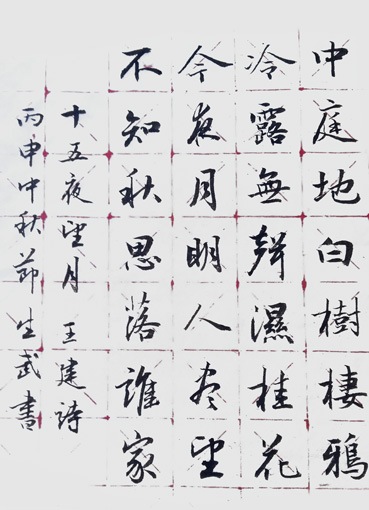 中庭地白樹棲鴉
冷露無聲濕桂花
今夜月明人盡望
不知秋思落誰家
十五夜望月 王建詩
丙申中秋節生武書